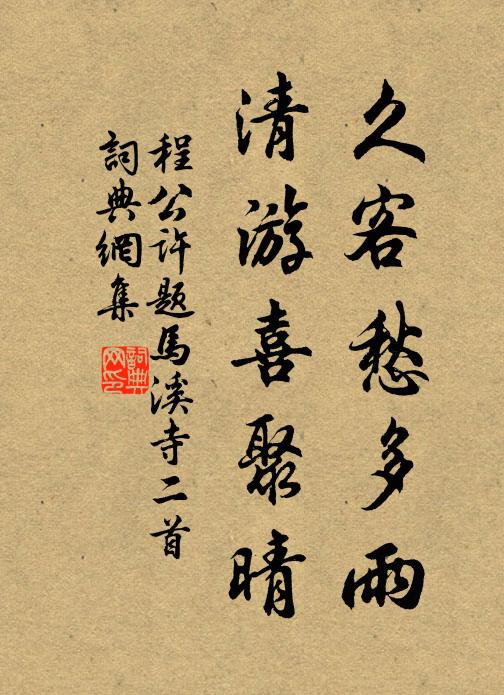 久客愁多雨
清游喜聚晴
程公许题馬溪寺二首
詞典網集
詞典網印